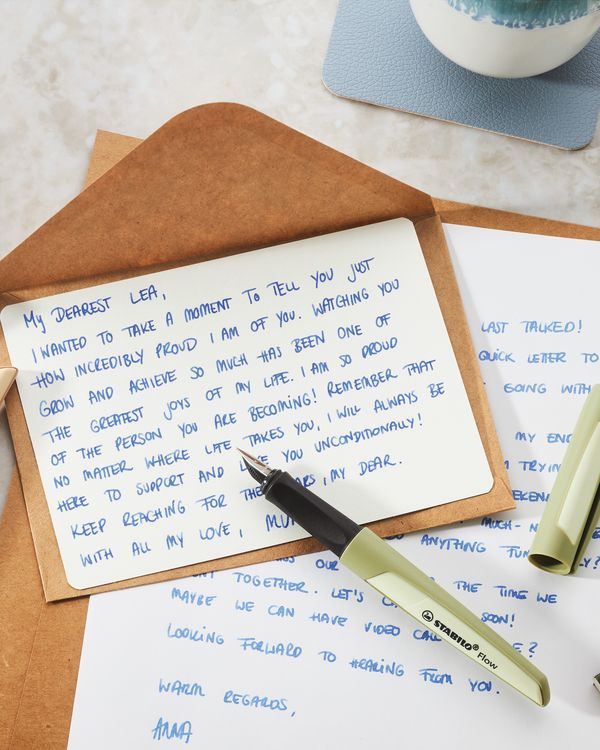 My DEAREST LEA,
I WANTED TO TAKE A MOMENT TO TELL YOU JUST
HOW INCREDIBLY PROUD I AM OF YOU. WATCHING YOU
GROW AND ACHIEVE SO MUCH HAS BEEN ONE OF
THE GREATEST JOYS OF MY LIFE. I AM SO PROUD
OF THE PERSON YOU ARE BECOMING! REMEMBER THAT
NO MATTER WHERE LIFE TAKES YOU, I WILL ALWAYS BE
HERE TO SUPPORT AND YOU UNCONDITIONALLY!
KEEP REACHING FOR THE ARS, MY DEAR.
WITH ALL MY LOVE,
LAST TALKED!
QUICK LETTER TO
GOING WITH
MY
MUCH-
ANYTHING
OUR
TOGETHER. LET'S THE TIME WE
MAYBE WE CAN HAVE VIDEO CALL SOON!
LOOKING FORWARD TO HEARING FROM YOU.
WARM REGARDS,
ANNA
STABILO® Flow